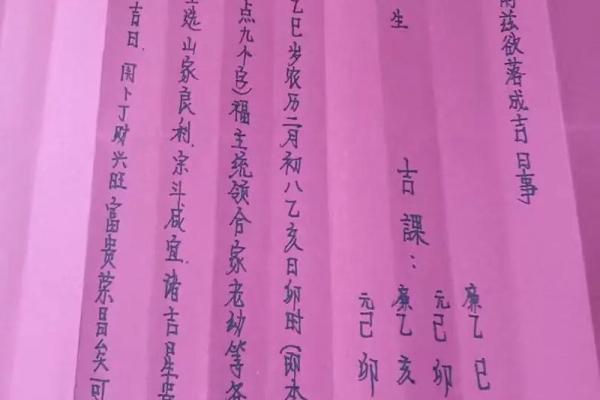 兹欲落成吉日事
生
廉乙巳
元己卯
吉課：廉乙亥
元己卯
乙巳岁农历二月初八乙亥日卯时（即本
点九个字）福主统领合家老幼等各
选山家良利.宗斗咸宜.诸吉星
吉日.用卜丁财兴旺富贵荣昌矣可